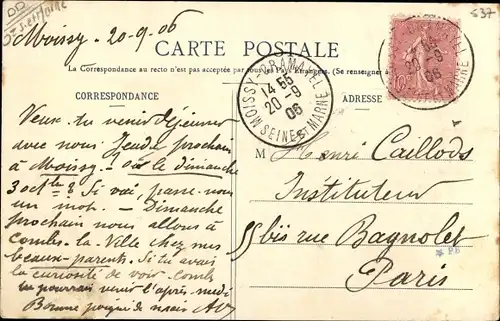 537
Moissy - 20-9-06
CARTE POSTALE
La Correspondance au recto n'est pas acceptée par tous les Pays Étrangers. (Se renseigner à
CORRESPONDANCE
ADRESSE
MOISSY-CRAMAYEL
14 55
20 -9
06
SEINE ET MARNE
Veux-tu venir déjeuner
avec nous Jeudi prochain
à Moissy - ou le dimanche
3 oct ? Si oui, passe-nous
un mot. - Dimanche
prochain nous allons à
Combs-la-Ville chez mes
beaux-parents. Si tu avais
la curiosité de voir Combs
tu pourrais venir l'après-midi
Bonne poignée de main
M Henri Caillods
Instituteur
55 bis rue Bagnolet
Paris